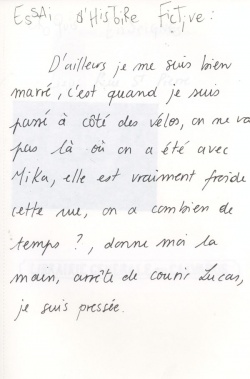 ESSAI d'HistoiRE FictivE :
D'ailleurs je me suis bien
marré, c'est quand je suis
passé à côté des velos, on ne va
pas là où on a été avec
Mika, elle est vraiment froide
cette rue, on a combien de
temps ?, donne moi la
main, arrête de courir Lucas,
je suis pressée.